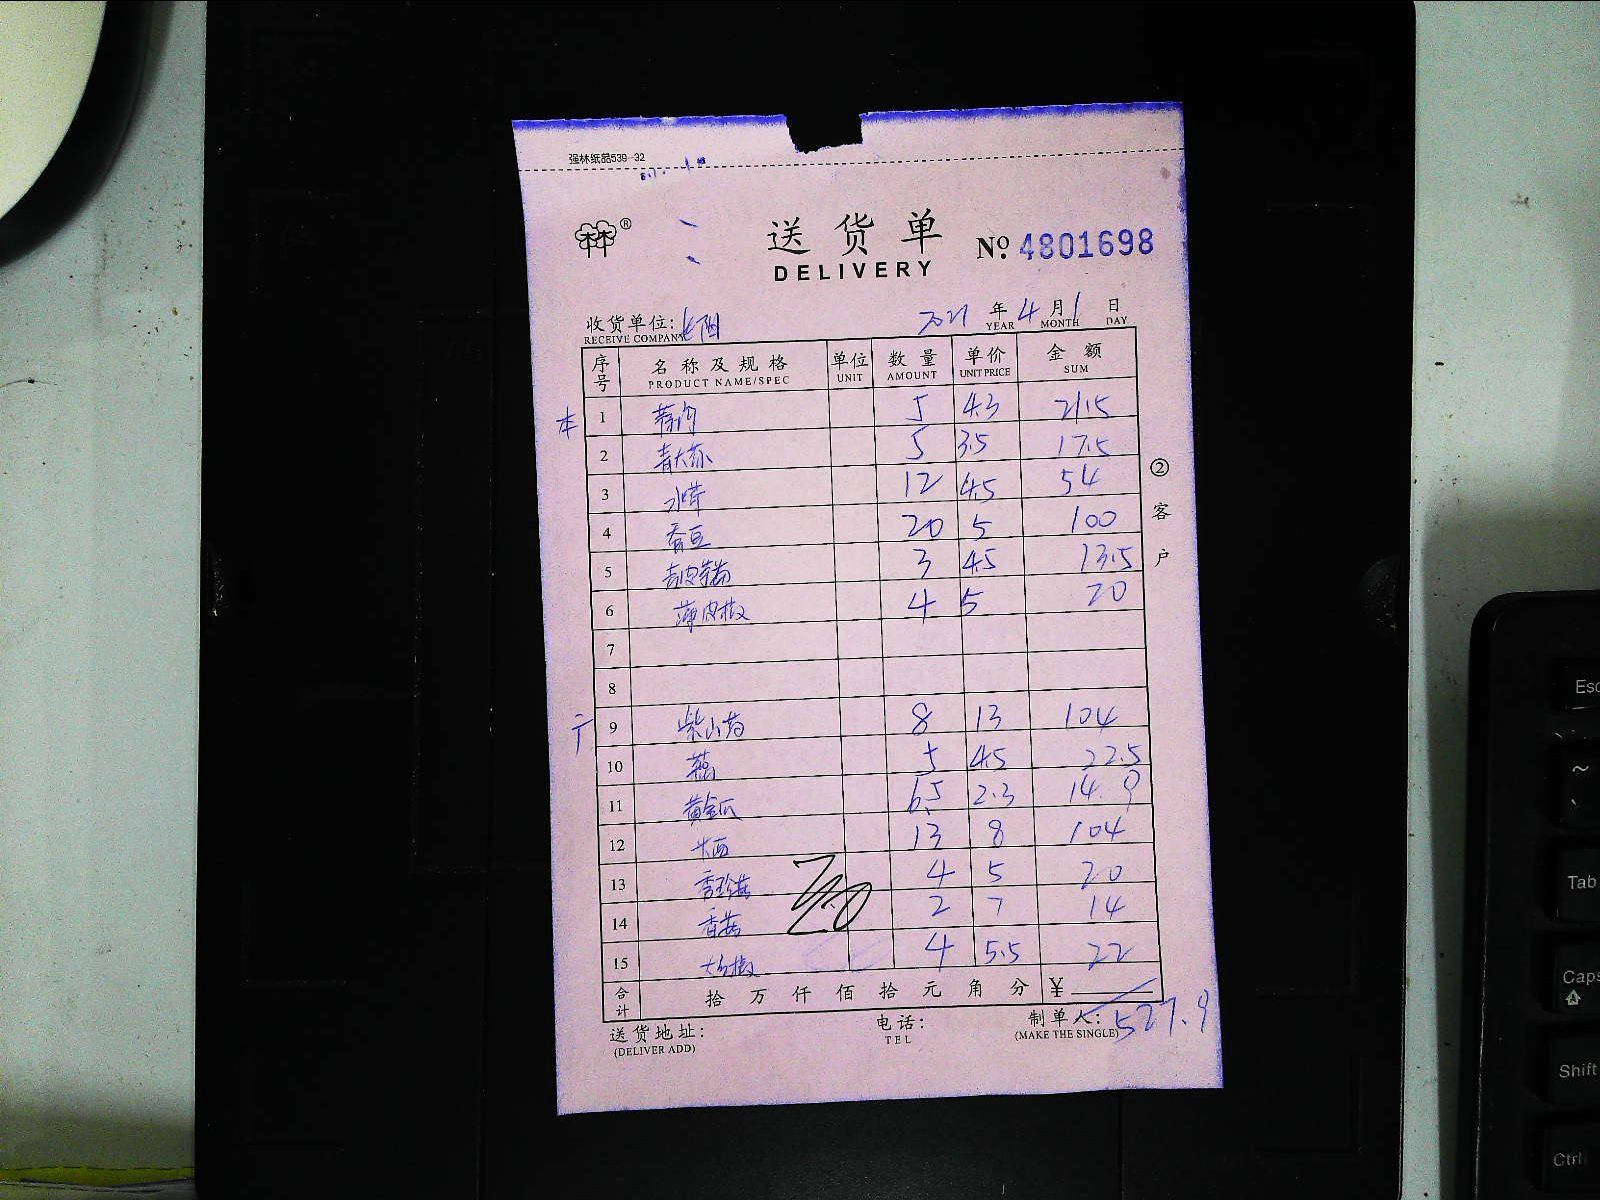 强林纸品539-32
®
送货单 No: 4801698
DELIVERY
收货单位: 2021 年 4 月 1 日
RECEIVE COMPANY YEAR MONTH DAY
序号 名称及规格 单位 数量 单价 金额
PRODUCT NAME/SPEC UNIT AMOUNT UNIT PRICE SUM
本 1 5 4.3 21.5
2 5 3.5 17.5
3 12 4.5 54
4 蚕豆 20 5 100
5 3 4.5 13.5
6 薄皮椒 4 5 20
7
8
9 紫山药 8 13 104
10 5 4.5 22.5
11 黄金瓜 6.5 2.3 14.9
12 13 8 104
13 4 5 20
14 香菇 2 7 14
15 4 5.5 22
合计 拾 万 仟 佰 拾 元 角 分 ¥
527.9
②客户
送货地址: 电话: 制单人:
(DELIVER ADD) TEL (MAKE THE SINGLE)
Esc
~
Tab
Caps
Shift
Ctrl